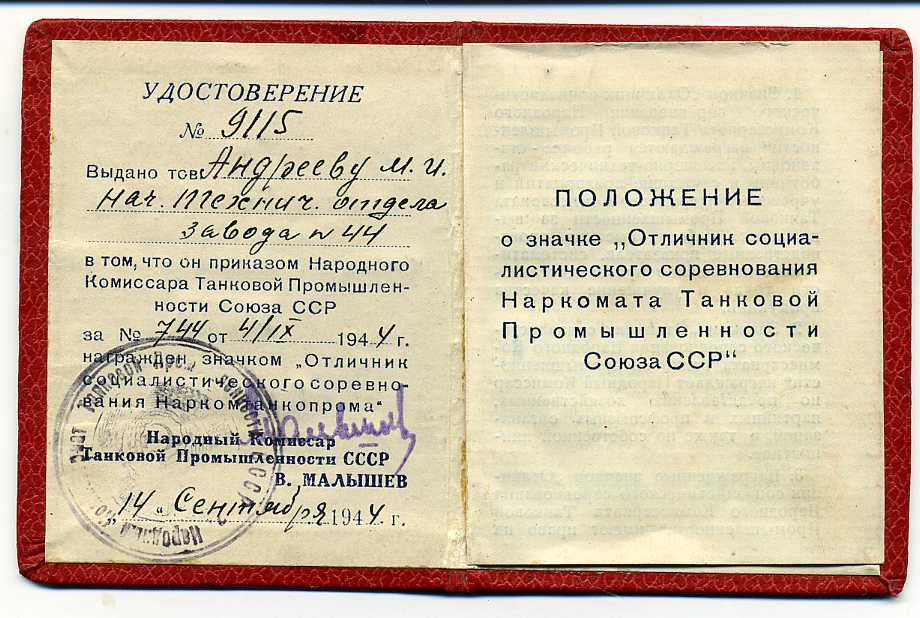 УДОСТОВЕРЕНИЕ
№ 9115
Выдано тов Андрееву М. И.
Нач. Технич. отдела
завода № 44
в том, что он приказом Народного
Комиссара Танковой Промышлен-
ности Союза ССР
за № 744 от 4/IX 1944 г.
награжден значком „Отличник
социалистического соревно-
вания Наркомтанкопрома“
Народный Комиссар
Танковой Промышленности СССР
В. МАЛЫШЕВ
„14“ Сентября 1944 г.
ПОЛОЖЕНИЕ
о значке „Отличник социа-
листического соревнования
Наркомата Танковой
Промышленности
Союза ССР“